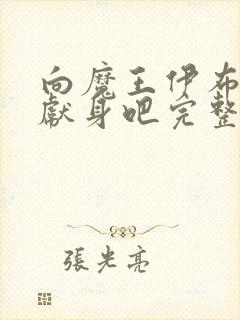 向魔王伊布
獻身吧完整
張光亮